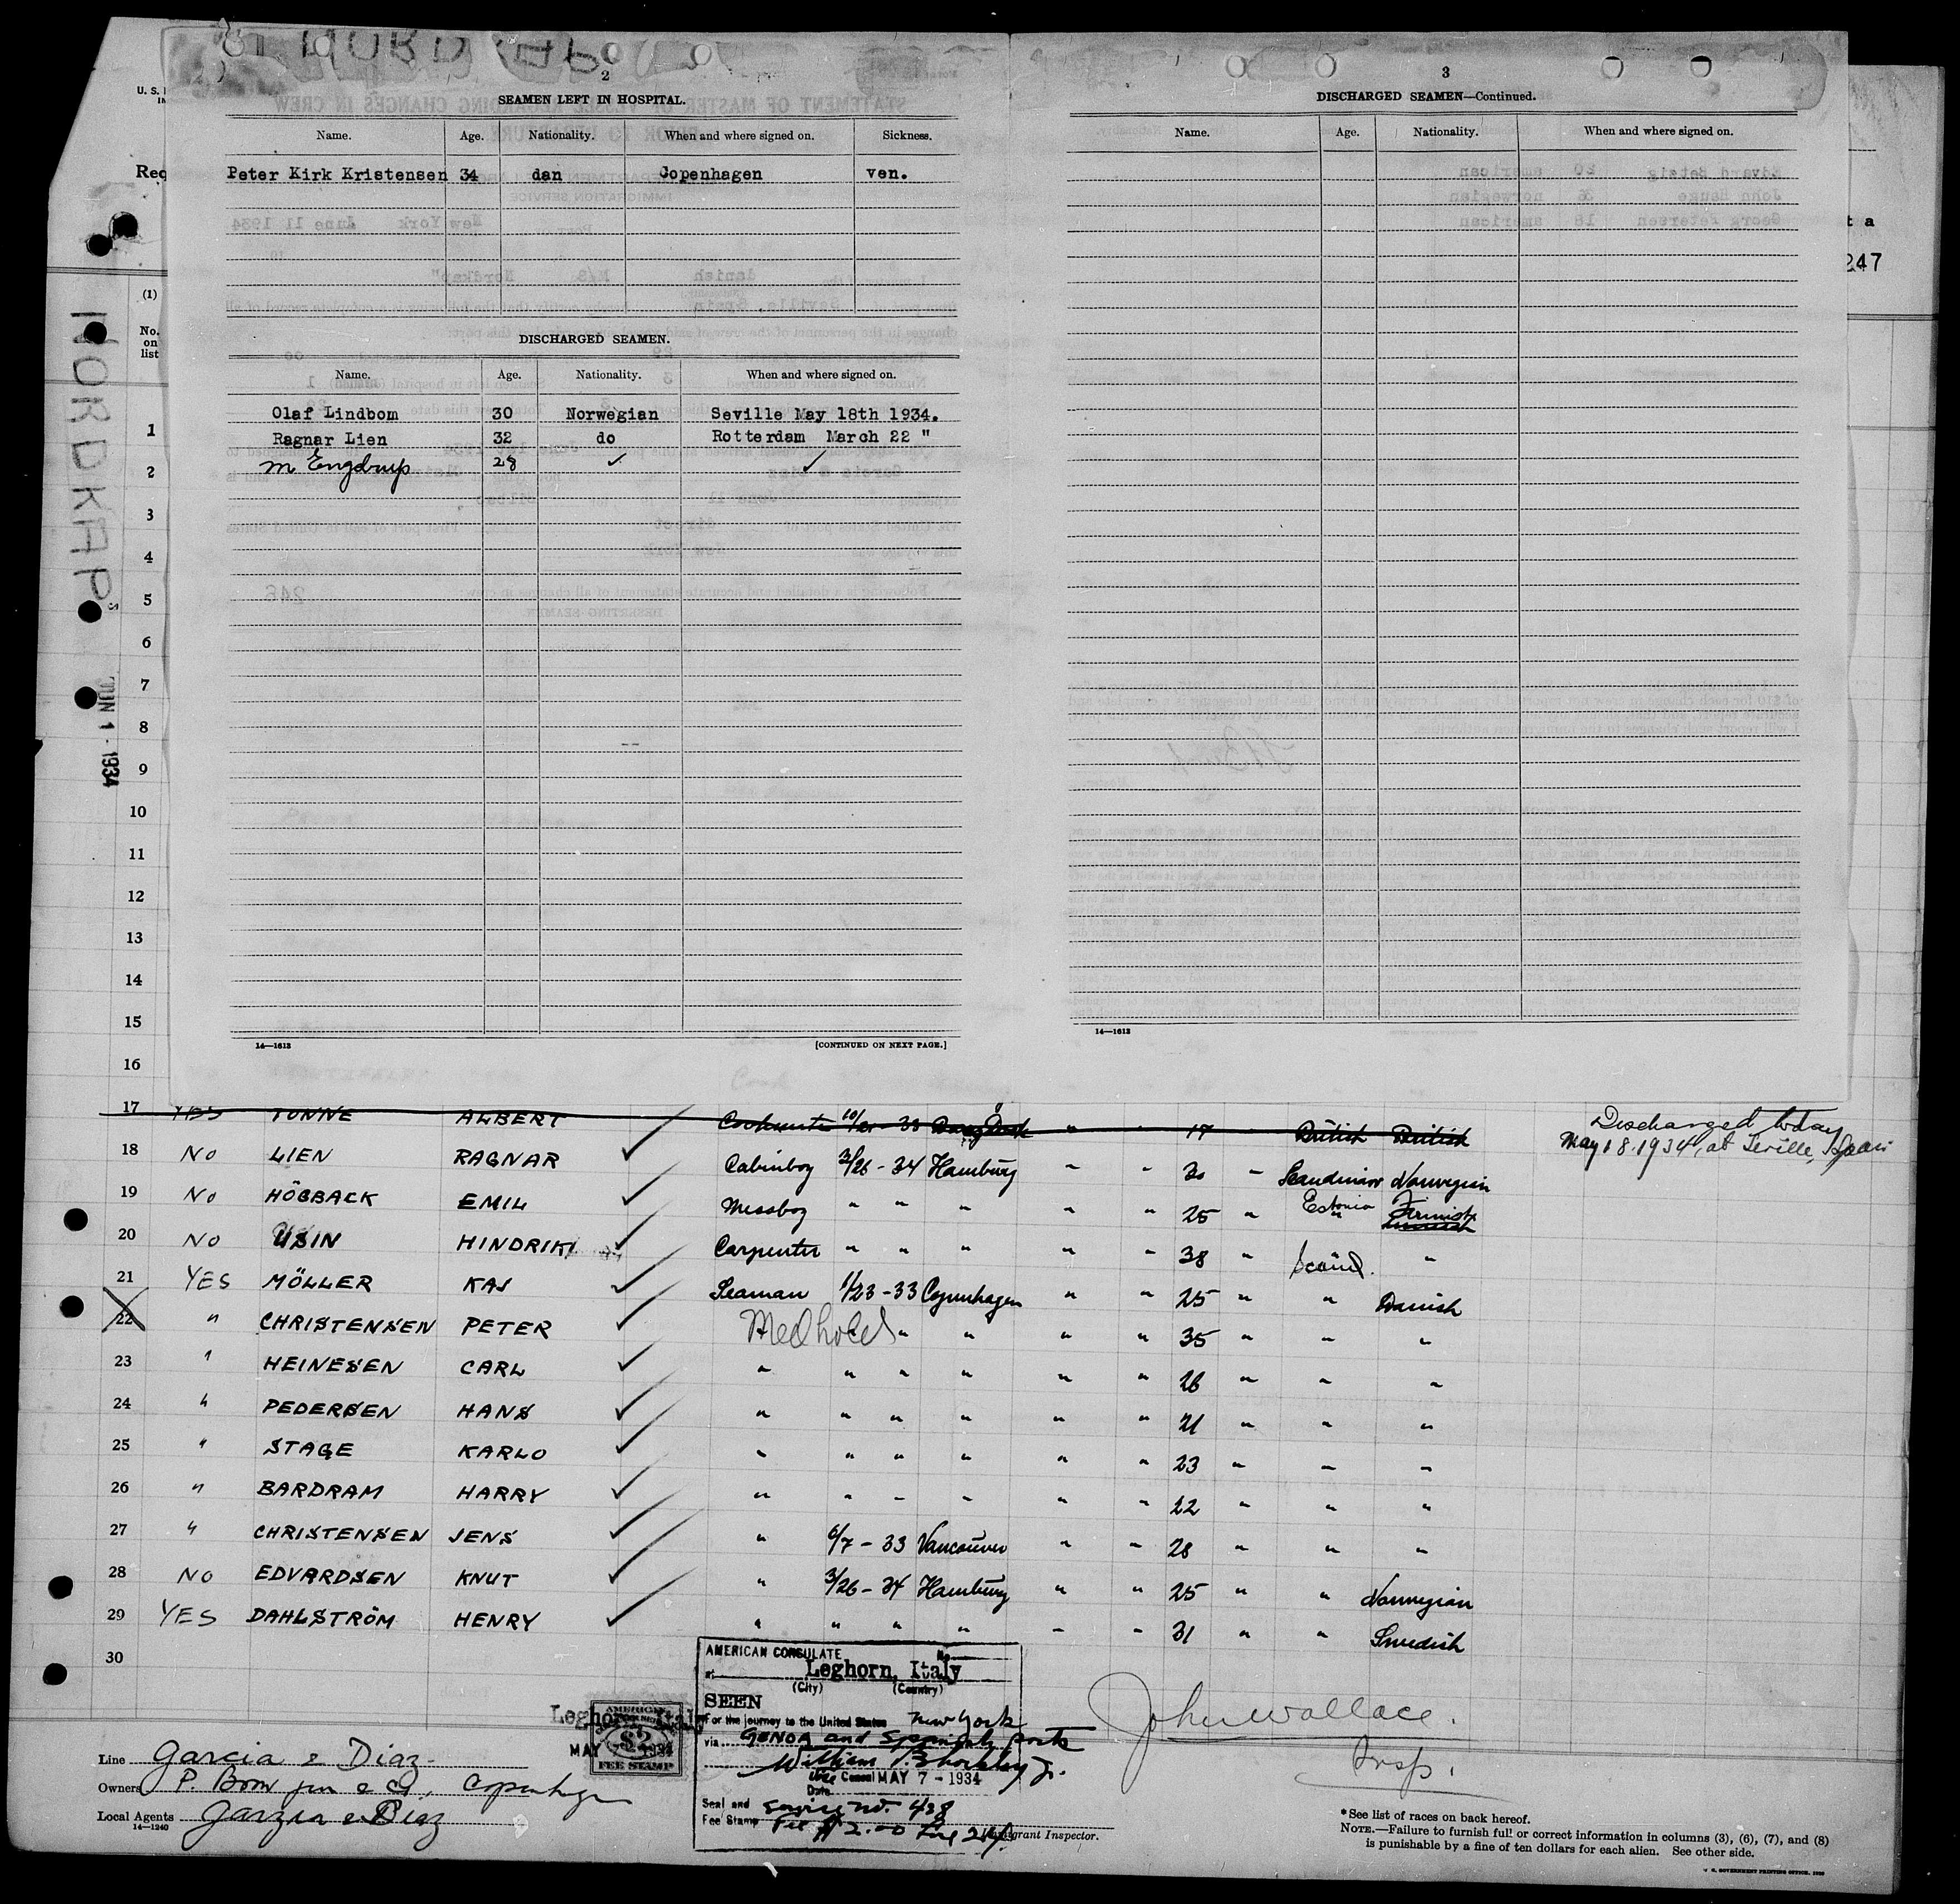 NORDKAP
2
SEAMEN LEFT IN HOSPITAL.
Name. Age. Nationality. When and where signed on. Sickness.
Peter Kirk Kristensen 34 dan Copenhagen ven.
DISCHARGED SEAMEN.
Name. Age. Nationality. When and where signed on.
Olaf Lindbom 30 Norwegian Seville May 18th 1934.
Ragnar Lien 32 do Rotterdam March 22 "
M Engdrup 28 ✓ ✓
14—1613 [CONTINUED ON NEXT PAGE.]
3
DISCHARGED SEAMEN—Continued.
Name. Age. Nationality. When and where signed on.
14—1613
U. S.
Req
t a
247
(1)
No. on list
NORDKAP
JUN 1 - 1934
1
2
3
4
5
6
7
8
9
10
11
12
13
14
15
16
17 YES TONNE ALBERT 10/21 - 33 17 British British Discharged today
May 18. 1934, at Seville, Spain
18 NO LIEN RAGNAR ✓ Cabinboy 3/26 - 34 Hamburg " " 30 " Scandinav Norwegian
19 NO HÖGBACK EMIL ✓ Messboy " " " " " 25 " Estonia
20 NO USIN HINDRIK ✓ Carpenter " " " " " 38 " Scand. "
21 YES MÖLLER KAJ ✓ Seaman 1/23 - 33 Copenhagen " " 25 " " Danish
22 " CHRISTENSEN PETER ✓ Med hold " " " " 35 " " "
23 " HEINESEN CARL ✓ " " " " " " 26 " " "
24 " PEDERSEN HANS ✓ " " " " " " 21 " " "
25 " STAGE KARLO ✓ " " " " " " 23 " " "
26 " BARDRAM HARRY ✓ " " " " " " 22 " " "
27 " CHRISTENSEN JENS ✓ " 6/7 - 33 Vancouver " " 28 " " "
28 NO EDVARDSEN KNUT ✓ " 3/26 - 34 Hamburg " " 25 " " Norwegian
29 YES DAHLSTRÖM HENRY ✓ " " " " " " 31 " " Swedish
30
AMERICAN CONSULATE No.
at Leghorn, Italy
(City) (Country)
SEEN
For the journey to the United States New York
via GENOA and Spanish ports
William Shockley Jr.
Vice Consul MAY 7 - 1934
Date
Seal and Service No. 438
Fee Stamp Fee $2.00
Leghorn, Italy
MAY 7 1934
AMERICAN
$2
FEE STAMP
John Wallace.
Insp.
Immigrant Inspector.
Line Garcia & Diaz
Owners P. Brown jun & Co, Copenhagen
Local Agents Garzia & Diaz
14—1240
* See list of races on back hereof.
NOTE.—Failure to furnish full or correct information in columns (3), (6), (7), and (8)
is punishable by a fine of ten dollars for each alien. See other side.
U. S. GOVERNMENT PRINTING OFFICE